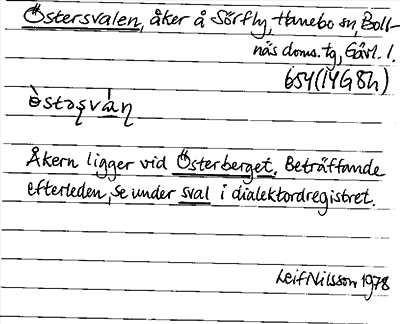 Östersvalen, åker å Sörfly, Hanebo sn, Boll-
näs doms. tg, Gävl. l.
654(14G8h)
òstəṣvá̱ṇ
Åkern ligger vid Österberget. Beträffande
efterleden, se under sval i dialektordregistret.
Leif Nilsson 1978